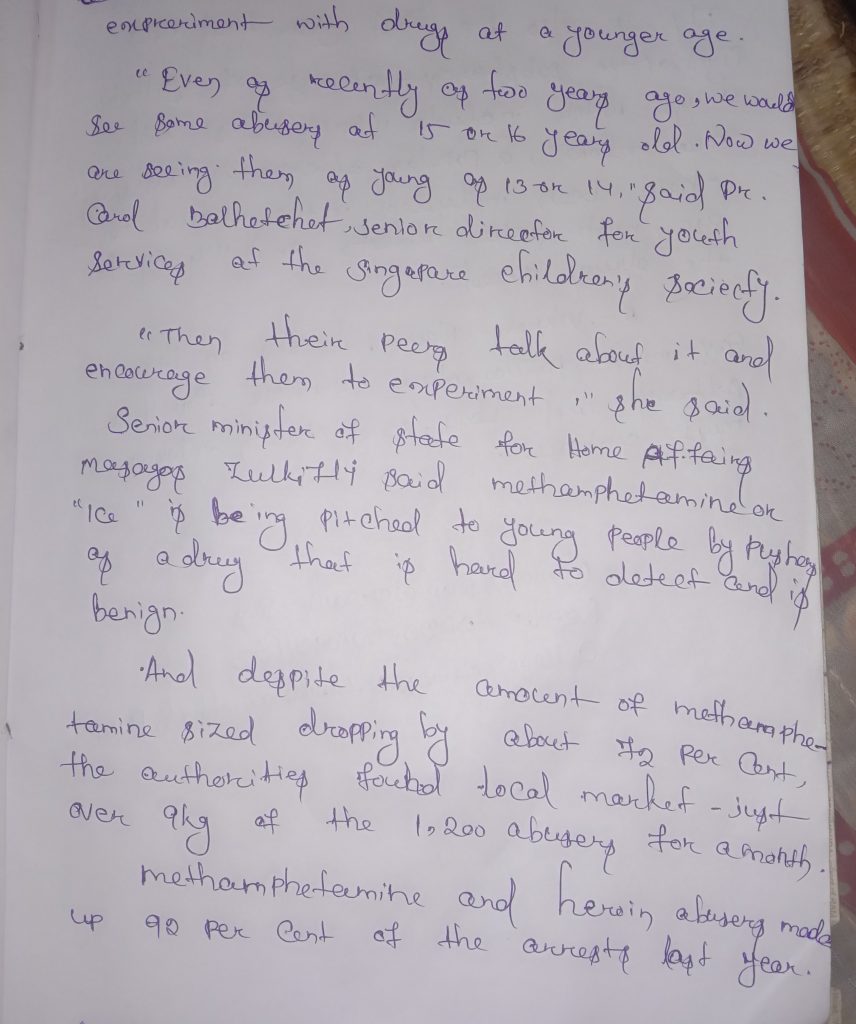 experiment with drugs at a younger age.
"Even as recently as two years ago, we would
see some abusers at 15 or 16 years old. Now we
are seeing them as young as 13 or 14," said Dr.
Carol Balhetchet, senior director for youth
services at the Singapare children's society.
"Then their peers talk about it and
encourage them to experiment," she said.
Senior minister of state for Home Affairs
Masagos Zulkifly said methamphetamine or
"Ice" is being pitched to young people by pushers
as a drug that is hard to detect and is
benign.
And despite the amocent of methamphe-
tamine sized dropping by about 72 per cent,
the authorities foubd local market - just
over 9kg of the 1,200 abusers for a month.
methamphetamine and heroin abusers made
up 92 per cent of the arrests last year.